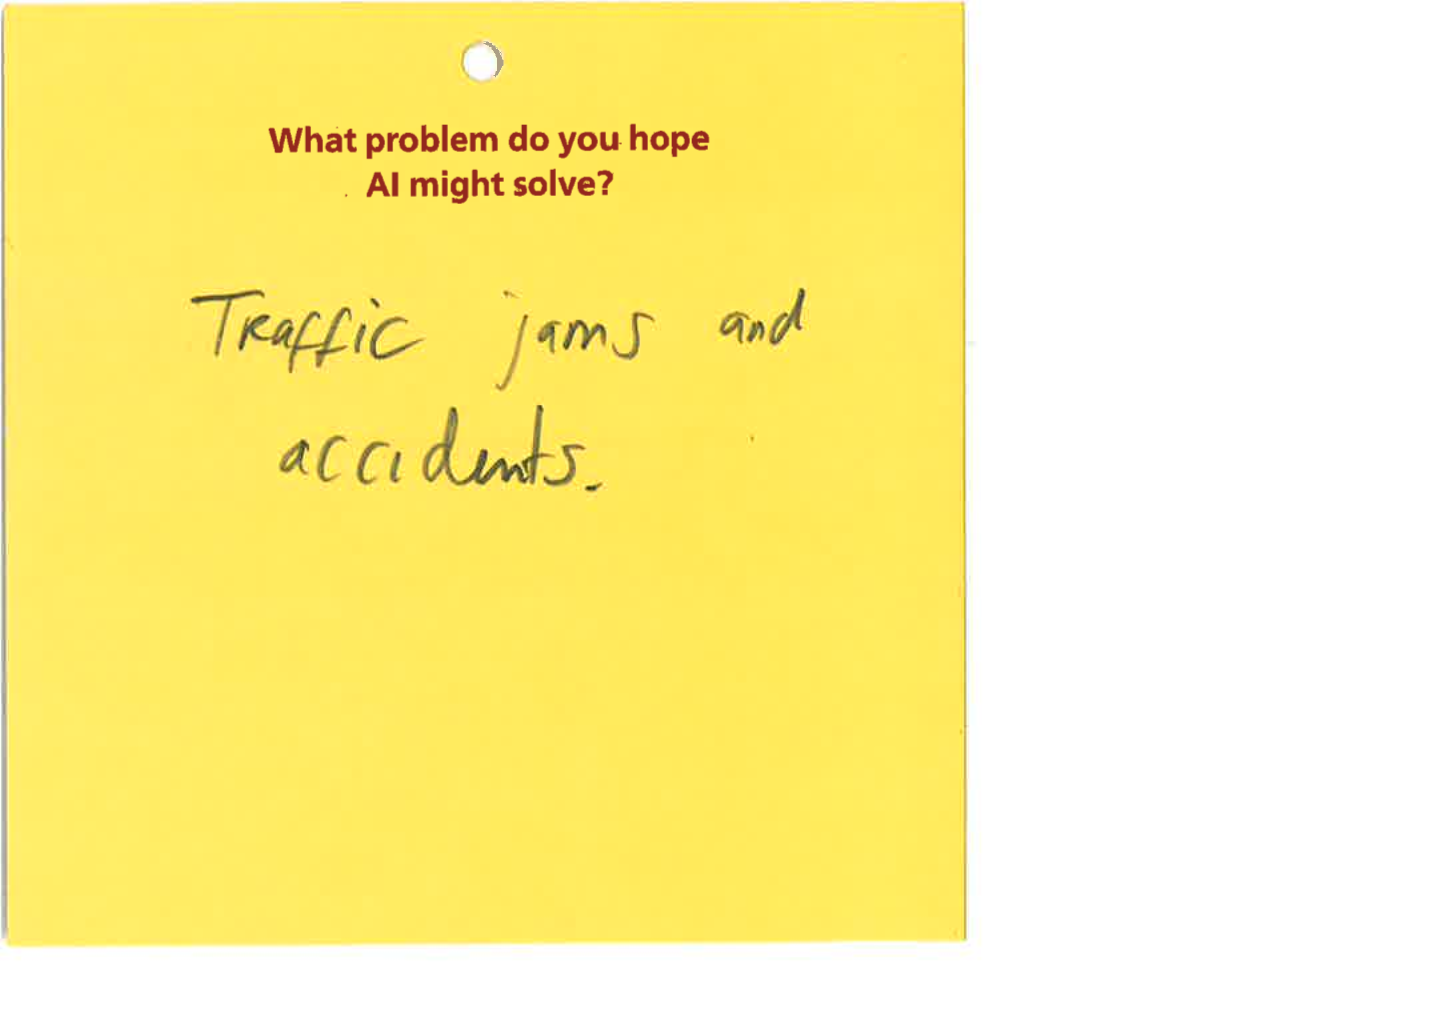 What problem do you hope
AI might solve?
Traffic jams and
accidents.